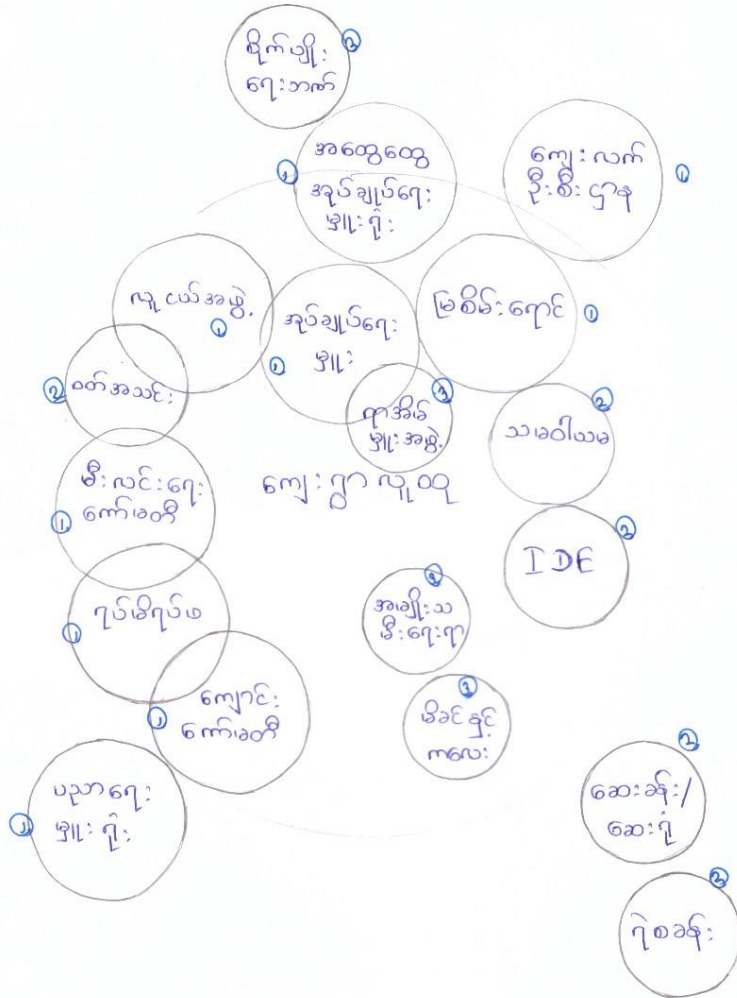 စိုက်ပျိုး
ရေးဘဏ်
၂
အထွေထွေ
အုပ်ချုပ်ရေး
မှူးရုံး
၁
ကျေးလက်
ဦးစီးဌာန
၁
လူငယ်အဖွဲ့
၁
အုပ်ချုပ်ရေး
မှူး
၁
မြစိမ်းရောင်
၁
ဝတ်အသင်း
၂
ရာအိမ်
မှူးအဖွဲ့
၃
သမဝါယမ
၂
မီးလင်းရေး
ကော်မတီ
၁
ကျေးရွာလူထု
IDE
၂
ရပ်မိရပ်ဖ
၁
အမျိုးသ
မီးရေးရာ
ကျောင်း
ကော်မတီ
၁
မိခင်နှင့်
ကလေး
၃
ပညာရေး
မှူးရုံး
၁
ဆေးခန်း/
ဆေးရုံ
၂
ရဲစခန်း
၂